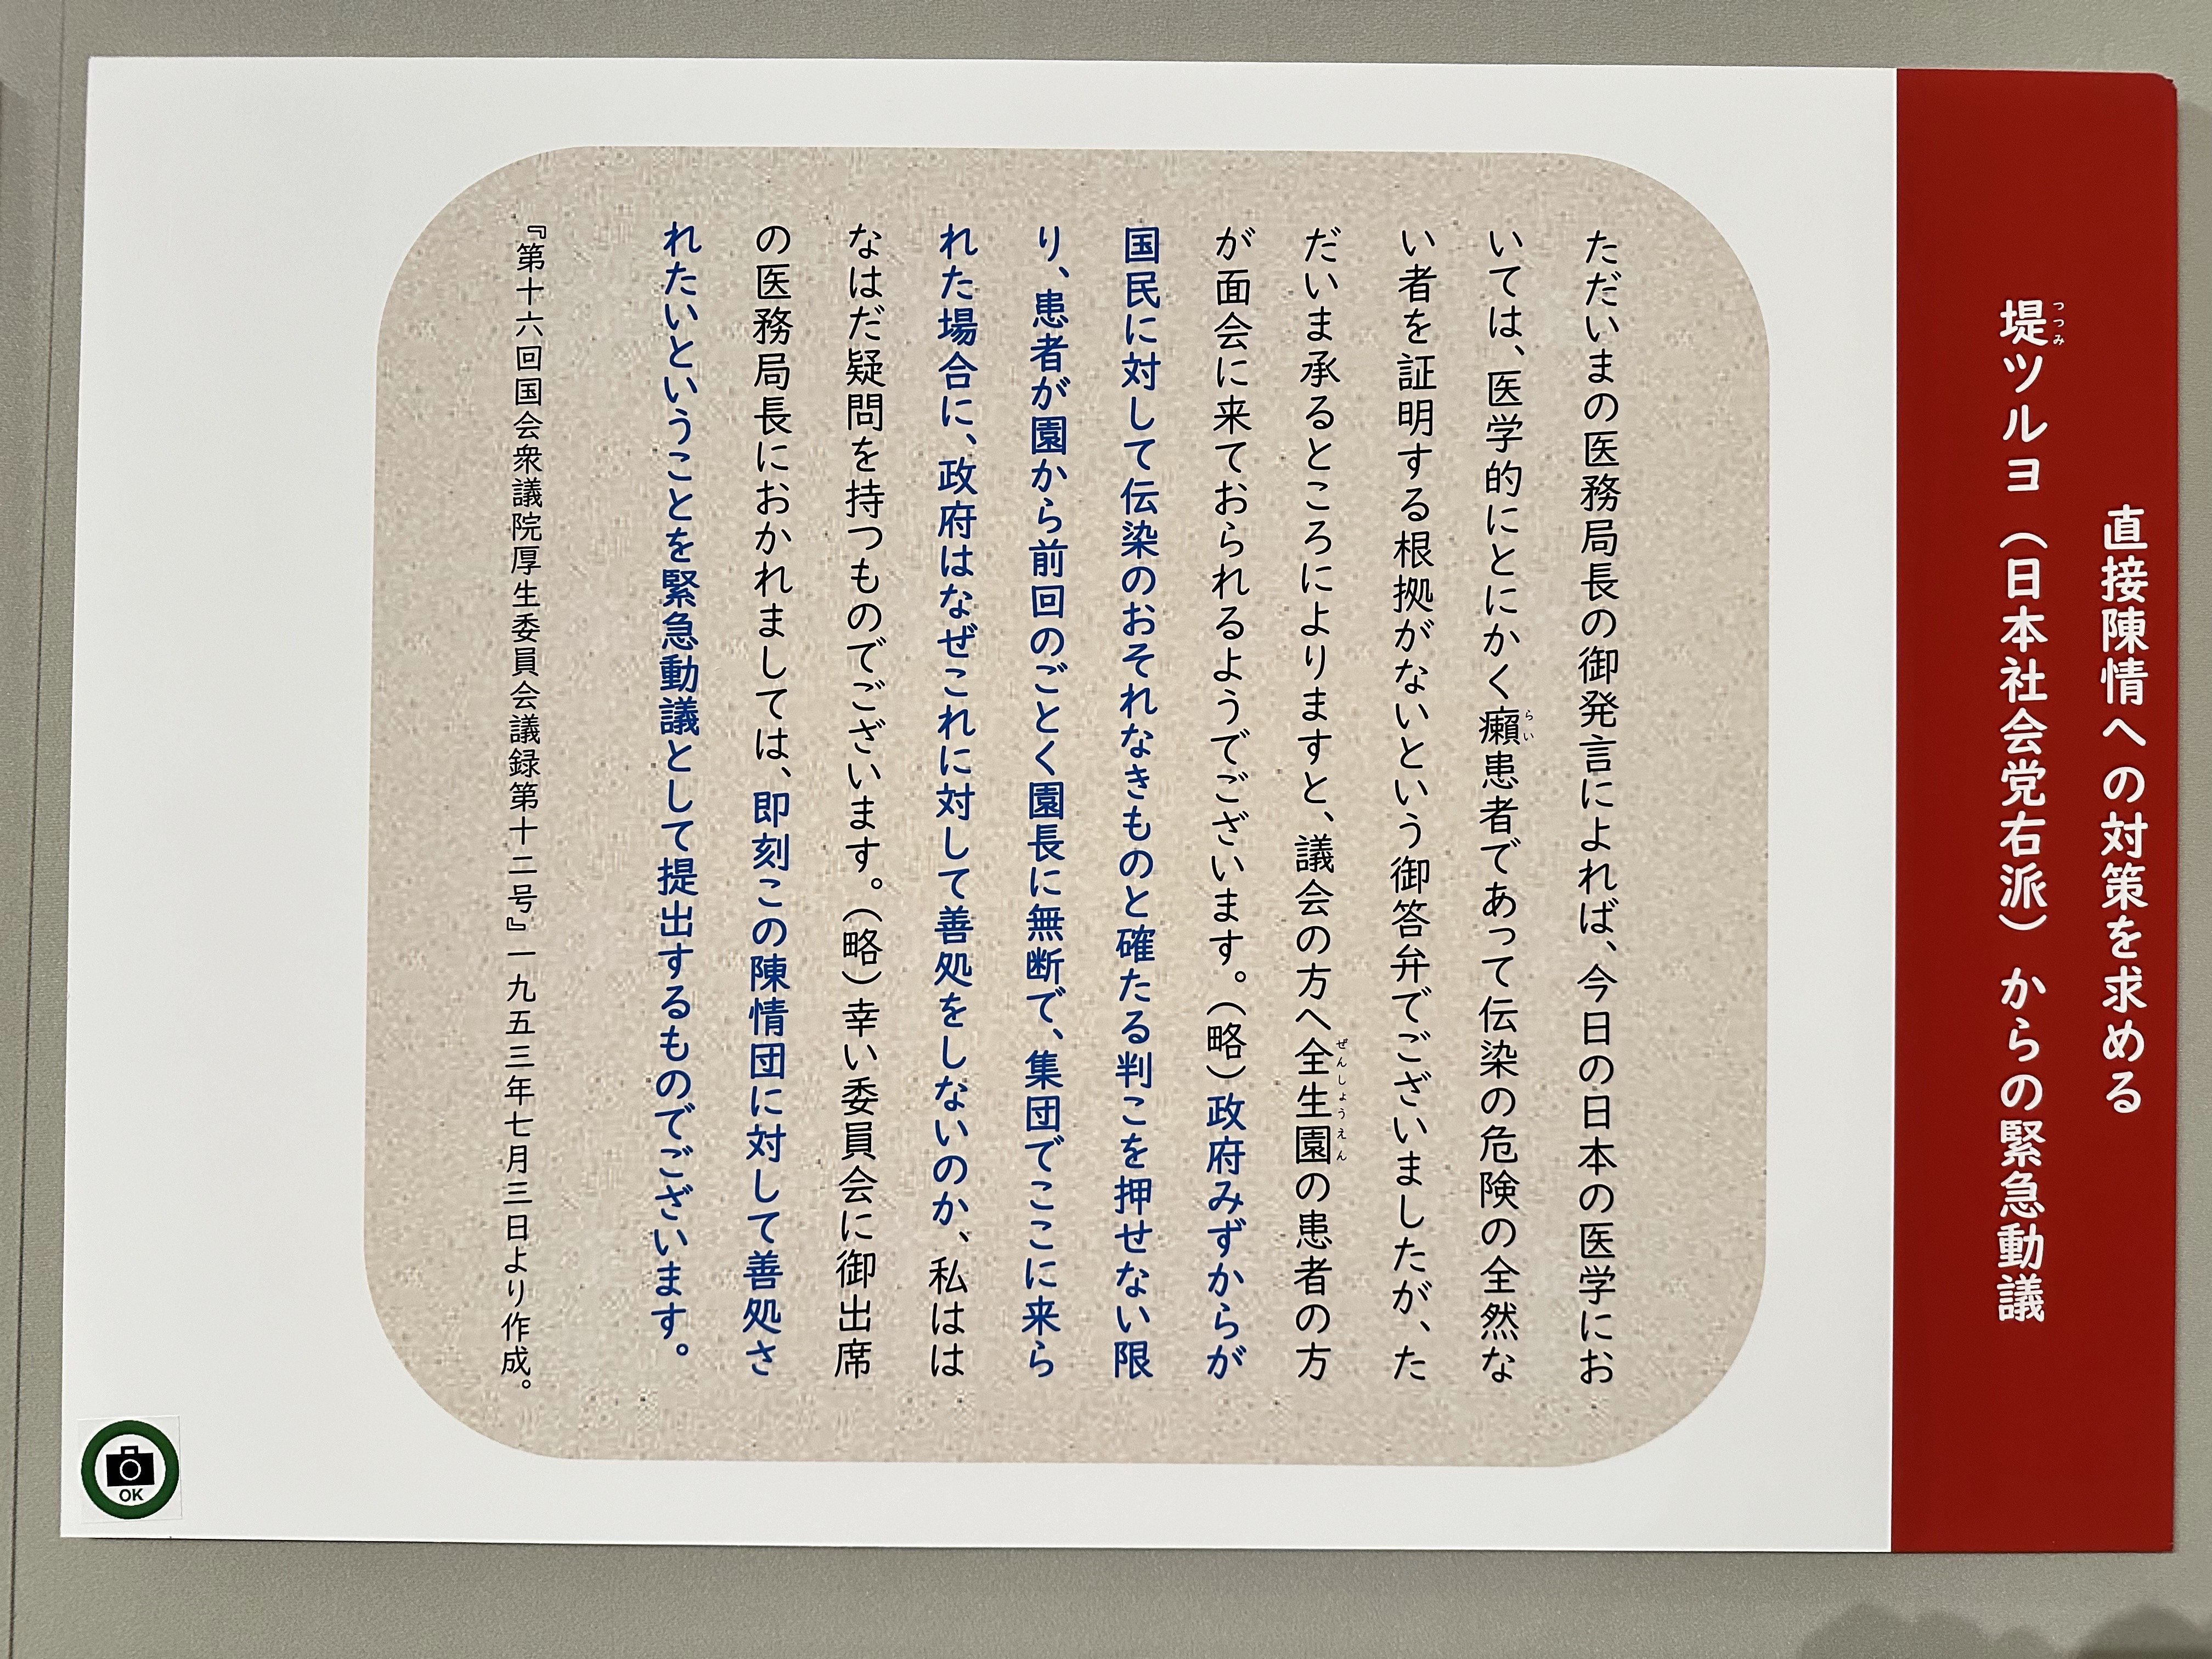 直接陳情への対策を求める
堤ツルヨ（日本社会党右派）からの緊急動議
つつみ
ただいまの医務局長の御発言によれば、今日の日本の医学にお
いては、医学的にとにかく癩患者であって伝染の危険の全然な
らい
い者を証明する根拠がないという御答弁でございましたが、た
だいま承るところによりますと、議会の方へ全生園の患者の方
ぜんしょうえん
が面会に来ておられるようでございます。（略）政府みずからが
国民に対して伝染のおそれなきものと確たる判こを押せない限
り、患者が園から前回のごとく園長に無断で、集団でここに来ら
れた場合に、政府はなぜこれに対して善処をしないのか、私はは
なはだ疑問を持つものでございます。（略）幸い委員会に御出席
の医務局長におかれましては、即刻この陳情団に対して善処さ
れたいということを緊急動議として提出するものでございます。
『第十六回国会衆議院厚生委員会議録第十二号』一九五三年七月三日より作成。
OK